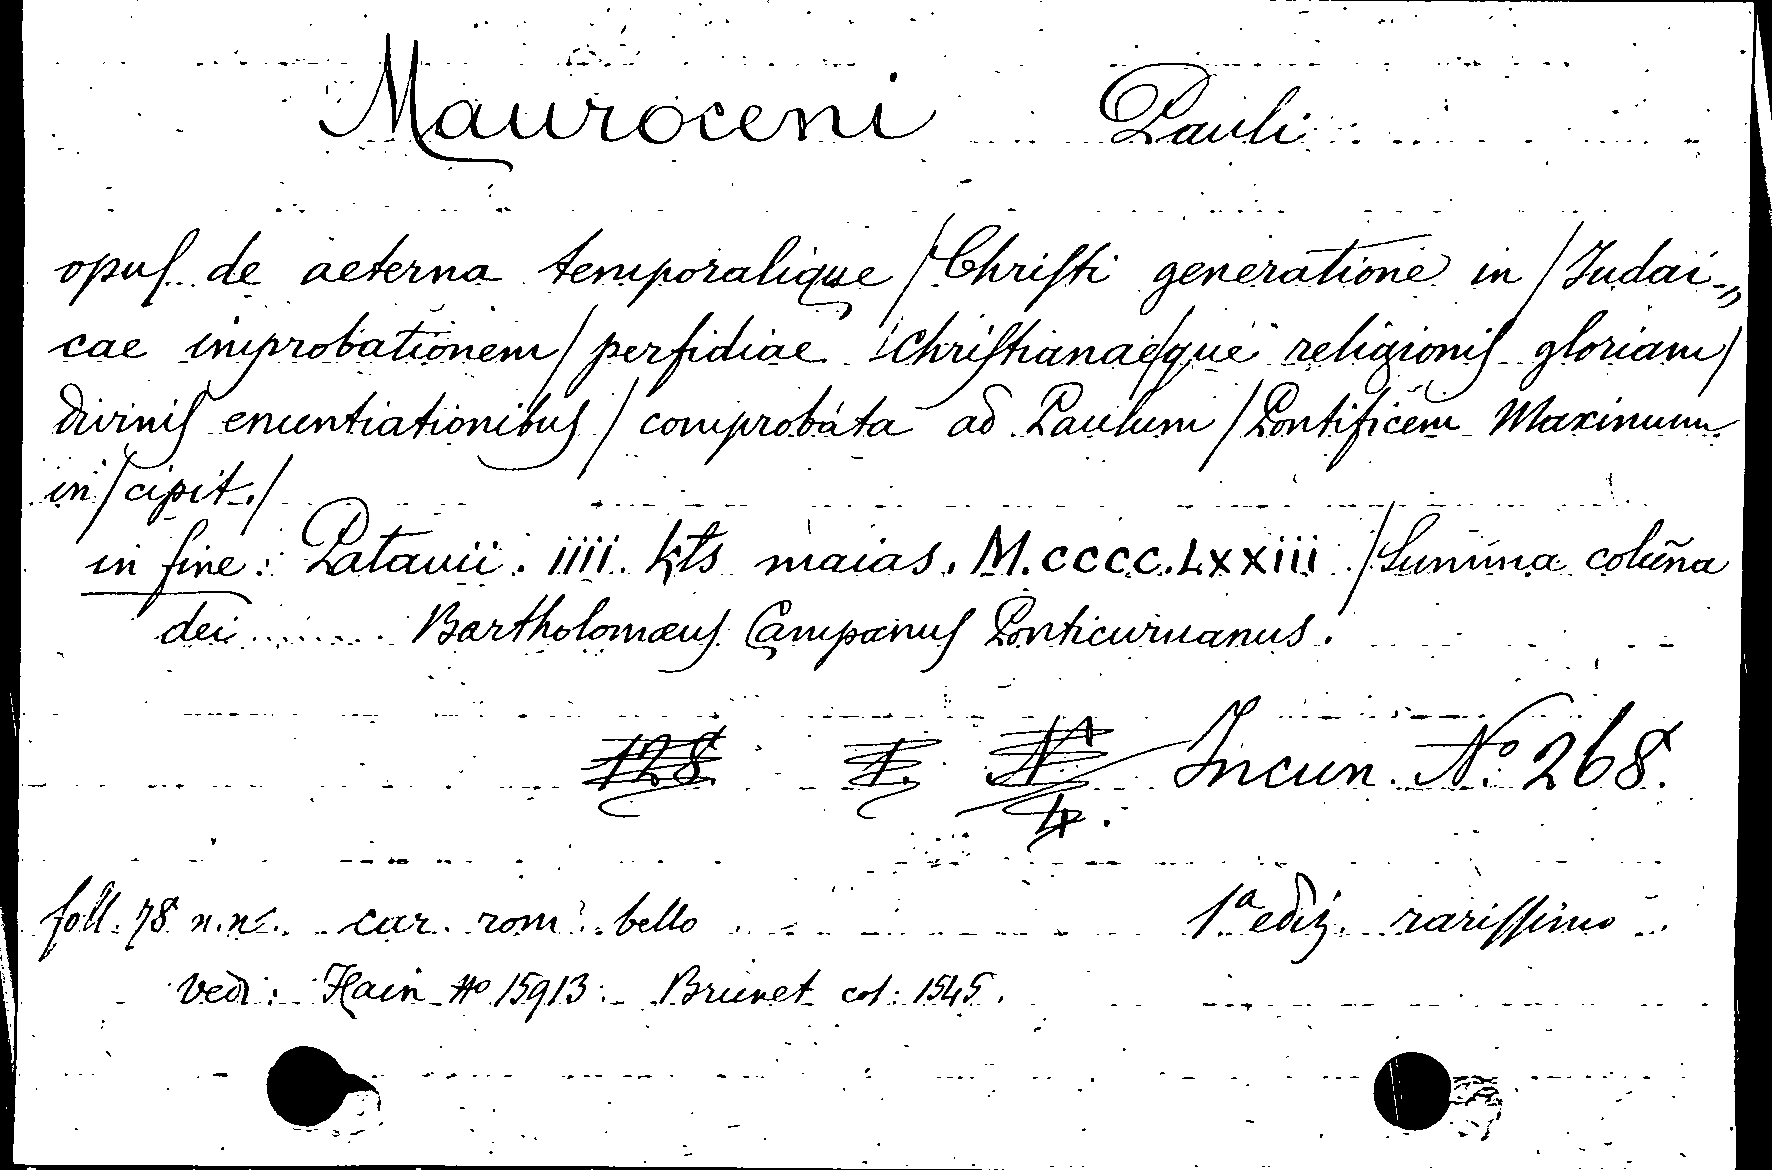 Mauroceni Pauli
opuſ de aeterna temporalique / Chriſti generatione in / Judai-„
cae improbationem / perfidiae / Chriſtianae/que religioniſ gloriam /
diviniſ enuntiationibuſ / comprobata ad Paulum / Pontificem Maximum
in / cipit. /
in fine: Patauii. iiii. kts maias. M.cccc.Lxxiii. / Summa colūna
dei ......... Bartholomæuſ Campanuſ Ponticuruanus.
128 1. Incun. Nº 268.
4.
foll. 78 n. n. car. rom. bello 1ª ediz. rariſſimo
vedi: Hain Nº 15913. Brunet col: 1545.